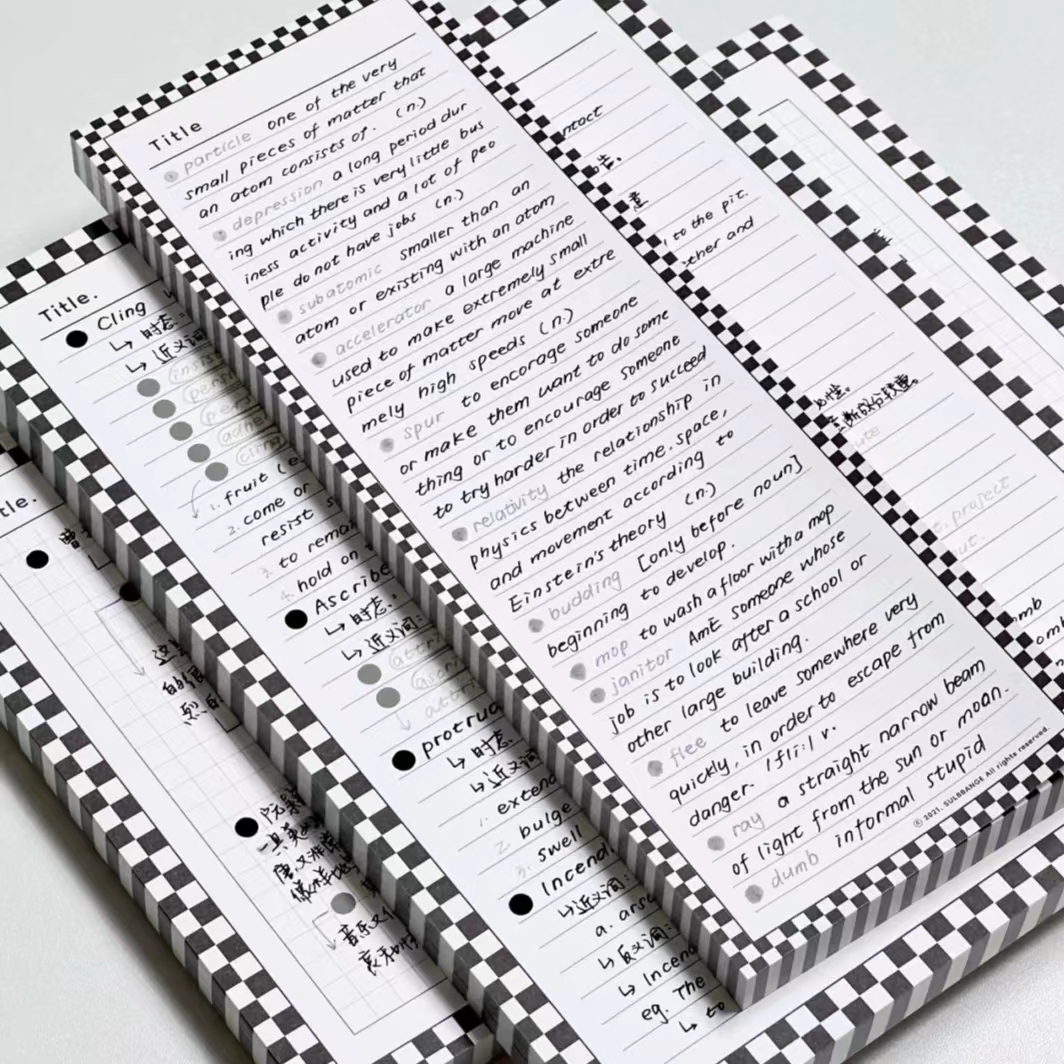 Title
particle one of the very
small pieces of matter that
an atom consists of. (n.)
depression a long period dur
ing which there is very little bus
iness activity and a lot of peo
ple do not have jobs (n.)
subatomic smaller than an
atom or existing with an atom
accelerator a large machine
used to make extremely small
piece of matter move at extre
mely high speeds (n.)
spur to encorage someone
or make them want to do some
thing or to encourage someone
to try harder in order to succeed
relativity the relationship in
physics between time, space,
and movement according to
Einstein's theory (n.)
budding [only before noun]
beginning to develop.
mop to wash a floor with a mop
janitor AmE someone whose
job is to look after a school or
other large building.
flee to leave somewhere very
quickly, in order to escape from
danger. /fli:/ v.
ray a straight narrow beam
of light from the sun or moan.
dumb informal stupid
© 2021. SULBBANGE All rights reserved.
Title.
Cling
↳ 时态:
↳ 近义词
1. fruit (e
2. come or
resist s
3. to remai
4. hold on t
Ascribe
↳ 时态:
↳ 近义词:
attri
protrud
↳ 时态:
↳ 近义词
1. extend
2. bulge
3. swell
Incend
↳ 近义词:
a. arso
↳ 反义词:
↳ Incen
eg. The
↳ to
tle.
ntact
to the pit.
ither and
project
omb